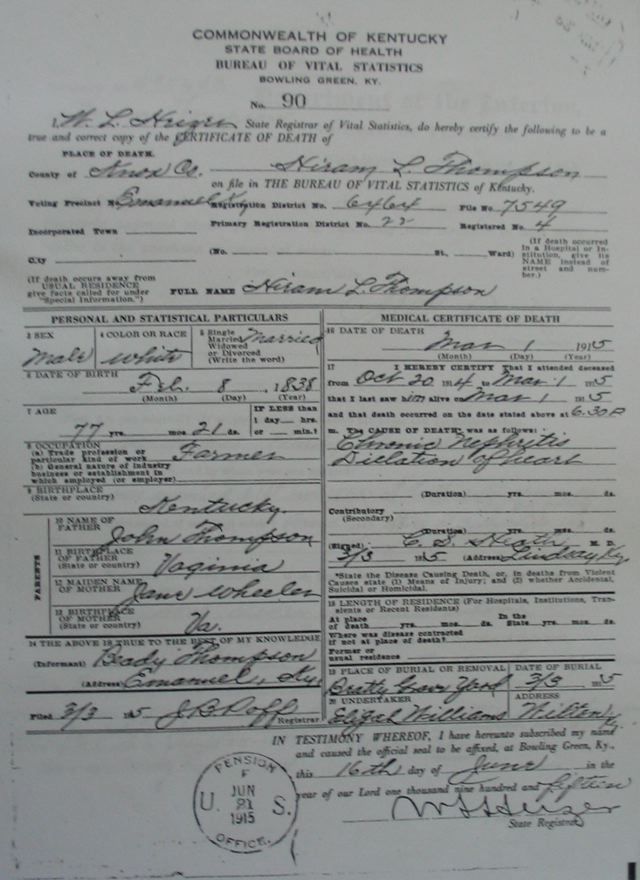 COMMONWEALTH OF KENTUCKY
STATE BOARD OF HEALTH
BUREAU OF VITAL STATISTICS
BOWLING GREEN, KY.
No. 90
I, W. L. Heizer State Registrar of Vital Statistics, do hereby certify the following to be a
true and correct copy of the CERTIFICATE OF DEATH of
PLACE OF DEATH.
County of Knox Co. Hiram L. Thompson
on file in THE BUREAU OF VITAL STATISTICS of Kentucky.
Voting Precinct No. Emanuel Ky Registration District No. 6464 File No. 7549
Incorporated Town Primary Registration District No. 22 Registered No. 4
City (No. St., Ward) (If death occurred in a Hospital or Institution, give its NAME instead of street and number.)
(If death occurs away from USUAL RESIDENCE give facts called for under "Special Information.") FULL NAME Hiram L. Thompson
PERSONAL AND STATISTICAL PARTICULARS
3 SEX Male
4 COLOR OR RACE White
5 Single Married Widowed or Divorced (Write the word) Married
6 DATE OF BIRTH
Feb. 8 1838
(Month) (Day) (Year)
7 AGE
77 yrs. mos. 21 ds.
IF LESS than 1 day hrs. or min.?
8 OCCUPATION
(a) Trade profession or particular kind of work Farmer
(b) General nature of industry business or establishment in which employed (or employer)
9 BIRTHPLACE
(State or country) Kentucky.
PARENTS
10 NAME OF FATHER John Thompson
11 BIRTHPLACE OF FATHER (State or country) Vaginia
12 MAIDEN NAME OF MOTHER Jane Wheeler
13 BIRTHPLACE OF MOTHER (State or country) Va.
14 THE ABOVE IS TRUE TO THE BEST OF MY KNOWLEDGE
(Informant) Thompson
(Address) Emanuel, Ky
Filed 3/3 1915 Registrar
MEDICAL CERTIFICATE OF DEATH
16 DATE OF DEATH
Mar 1 1915
(Month) (Day) (Year)
17 I HEREBY CERTIFY That I attended deceased
from Oct 20 1914 to Mar. 1 1915
that I last saw him alive on Mar 1 1915
and that death occurred on the date stated above at 6.30 P
m. The CAUSE OF DEATH was as follows:
Chronic Nephritis
Dilation of heart
(Duration) yrs. mos. ds.
Contributory
(Secondary)
(Duration) yrs. mos. ds.
(Signed) C. S. M. D.
3/3 1915 (Address) Lindsay Ky
*State the Disease Causing Death, or, in deaths from Violent Causes state (1) Means of Injury; and (2) whether Accidental, Suicidal or Homicidal.
18 LENGTH OF RESIDENCE (For Hospitals, Institutions, Transients or Recent Residents)
At place of death yrs. mos. ds. In the State yrs. mos. ds.
Where was disease contracted if not at place of death?
Former or usual residence
19 PLACE OF BURIAL OR REMOVAL Grave Yard
DATE OF BURIAL 3/3 1915
20 UNDERTAKER Elijah Williams
ADDRESS Wilton Ky
IN TESTIMONY WHEREOF, I have hereunto subscribed my name
and caused the official seal to be affixed, at Bowling Green, Ky.,
this 16th day of June in the
year of our Lord one thousand nine hundred and fifteen
W L Heizer
State Registrar
PENSION OFFICE.
U. S.
JUN 21 1915